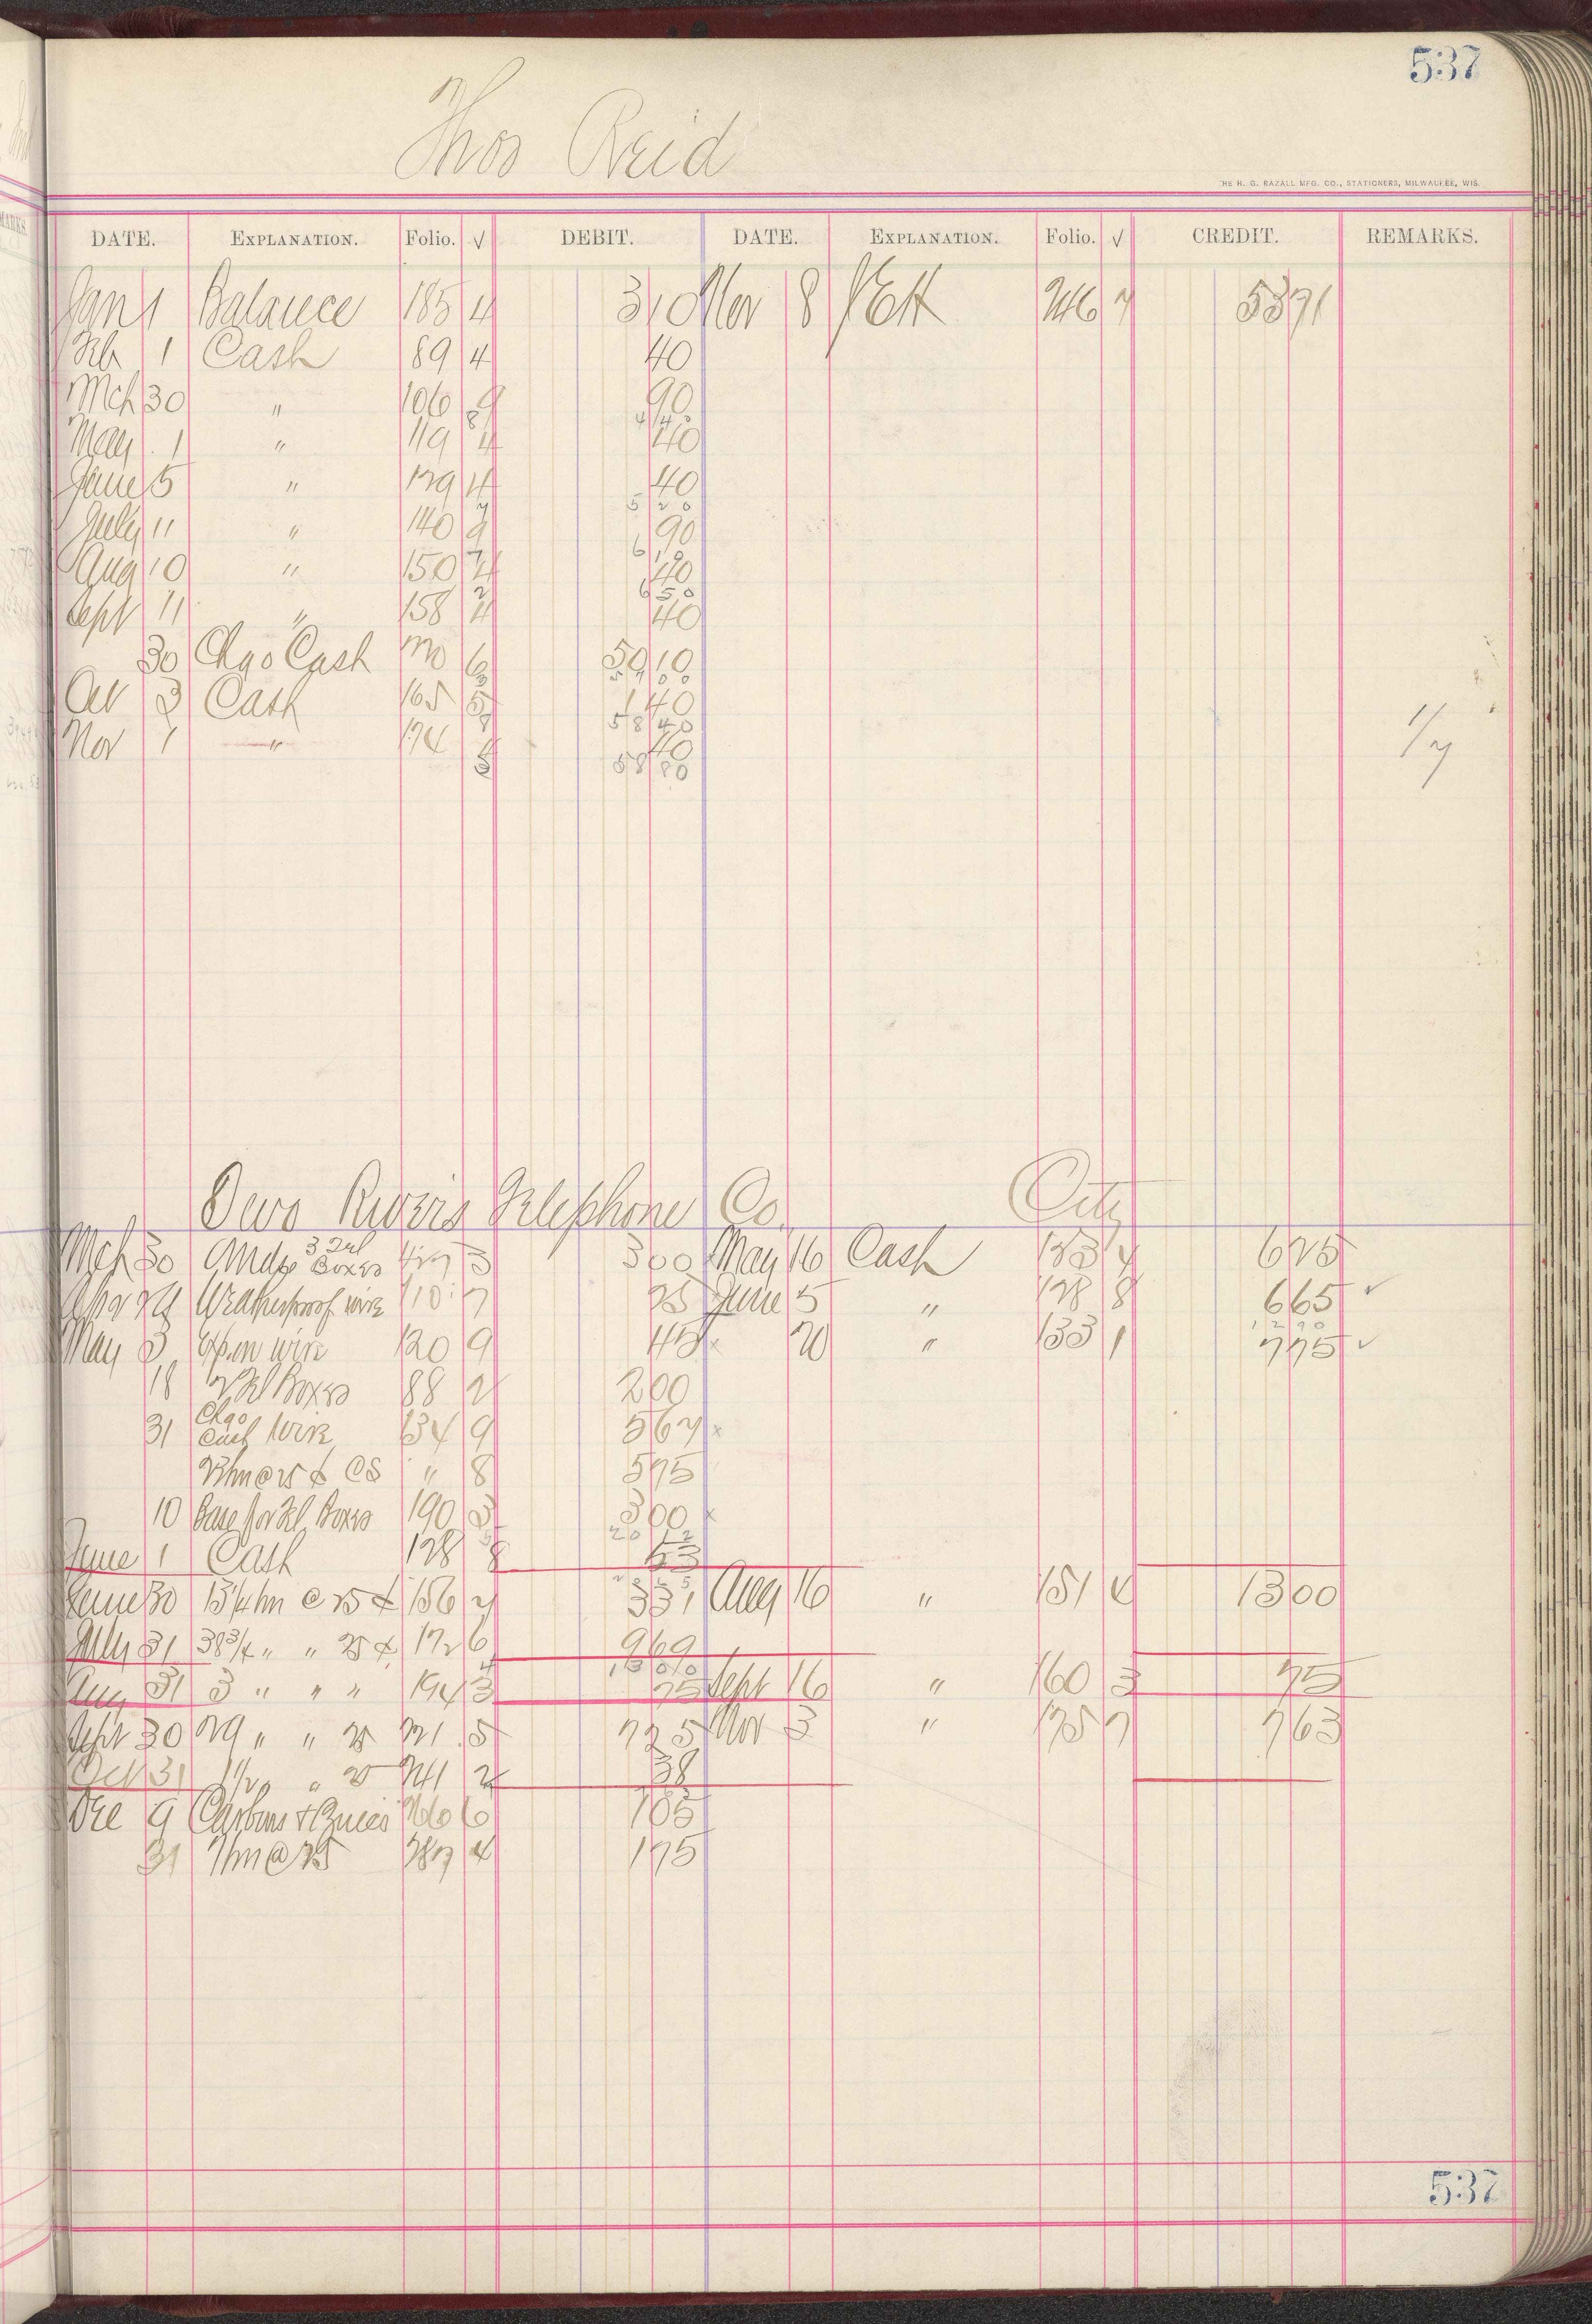 537
Thos Reid
THE H. G. RAZALL MFG. CO., STATIONERS, MILWAUKEE, WIS.
DATE. EXPLANATION. Folio. √ DEBIT. DATE. EXPLANATION. Folio. √ CREDIT. REMARKS.
Jan 1 Balance 185 4 3 10 Nov 8 246 7 53 71
Feb 1 Cash 89 4 40
Mch 30 " 106 9 90
8 4 40
May 1 " 119 4 40
June 5 " 129 4 40
5 20
July 11 " 140 9 90
6 10
Aug 10 " 150 4 40
6 50
Sept 11 " 158 4 40
30 Chgo Cash 170 6 50 10
57 00
Oct 3 Cash 165 5 1 40
58 40
Nov 1 " 174 4 40
58 80
1/7
Two Rivers Telephone Co. City
Mch 30 Mdse 3 Tel Boxes 427 3 3 00 May 16 Cash 123 4 6 25
Apr 24 Weatherproof wire 110 7 25 June 5 " 128 8 6 65 ✓
12 90
May 3 wire 120 9 45 x 20 " 133 1 7 75 ✓
18 2 Tel Boxes 88 2 2 00
31 Chgo Cash Wire 134 9 5 67 x
23 hn @ 25 ¢ CS " 8 5 75
10 Base for Tel. Boxes 190 3 3 00 x
20 12
June 1 Cash 128 8 53
June 30 13 1/4 hn @ 25 ¢ 156 2 3 31 Aug 16 " 151 4 13 00
July 31 38 3/4 " " 25 ¢ 172 6 9 69
13 00
Aug 31 3 " " " 194 3 75 Sept 16 " 160 3 75
Sept 30 29 " " 25 221 5 7 25 Nov 3 " 175 7 7 63
Oct 31 1 1/2 " " 25 241 2 38
Dec 9 Carbons & 266 6 1 05
31 7 hn @ 25 287 4 1 75
537